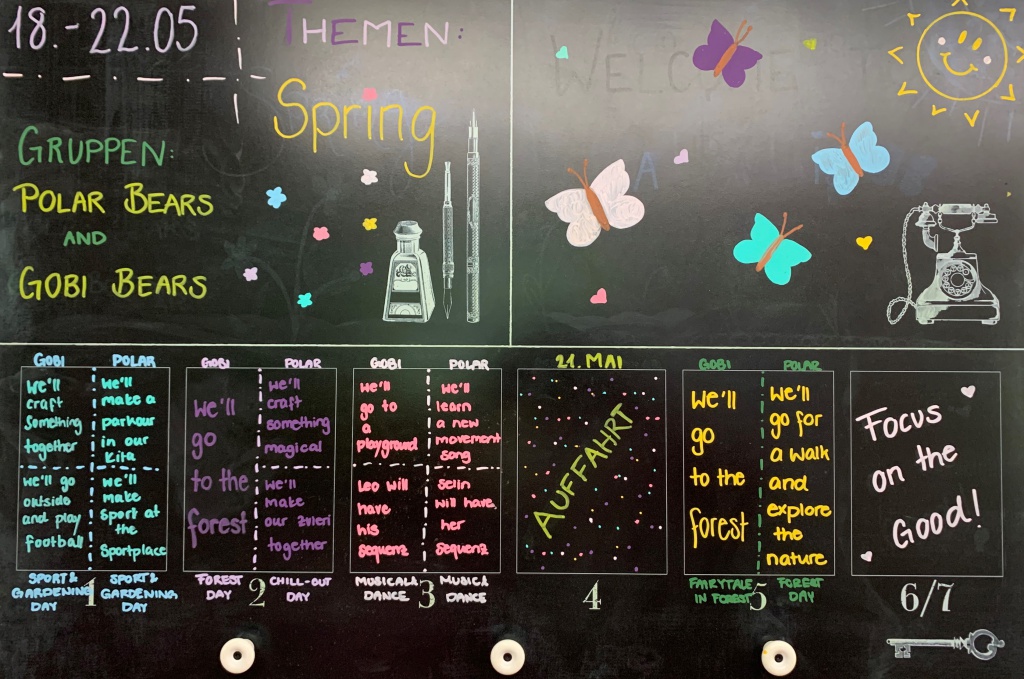 18.-22.05
THEMEN:
Spring
GRUPPEN:
POLAR BEARS
AND
GOBI BEARS
WELCOME
A
GOBI
we'll
craft
something
together
we'll go
outside
and play
football
SPORT &
GARDENING
DAY
POLAR
we'll
make a
parkour
in our
Kita
we'll
make
sport at
the
sportplace
SPORT &
GARDENING
DAY
1
GOBI
we'll
go
to the
forest
FOREST
DAY
POLAR
we'll
craft
something
magical
we'll
make
our zvieri
together
CHILL-OUT
DAY
2
GOBI
we'll
go to
a
playground
Leo will
have
his
sequenz
MUSICAL &
DANCE
POLAR
we'll
learn
a new
movement
song
Selin
will have
her
sequenz
MUSIC &
DANCE
3
21. MAI
AUFFAHRT
4
GOBI
we'll
go
to the
forest
FAIRYTALE
IN FOREST
POLAR
we'll
go for
a walk
and
explore
the
nature
FOREST
DAY
5
Focus
on the
Good!
6/7